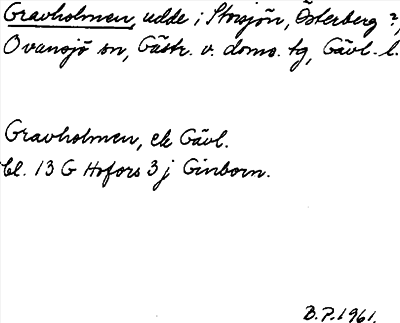 Gravholmen, udde i Storsjön, Österberg ?,
Ovansjö sn, Gästr. v. doms. tg, Gävl. l.
Gravholmen, ek Gävl.
bl. 13 G Hofors 3 j Ginborn.
B.P. 1961.